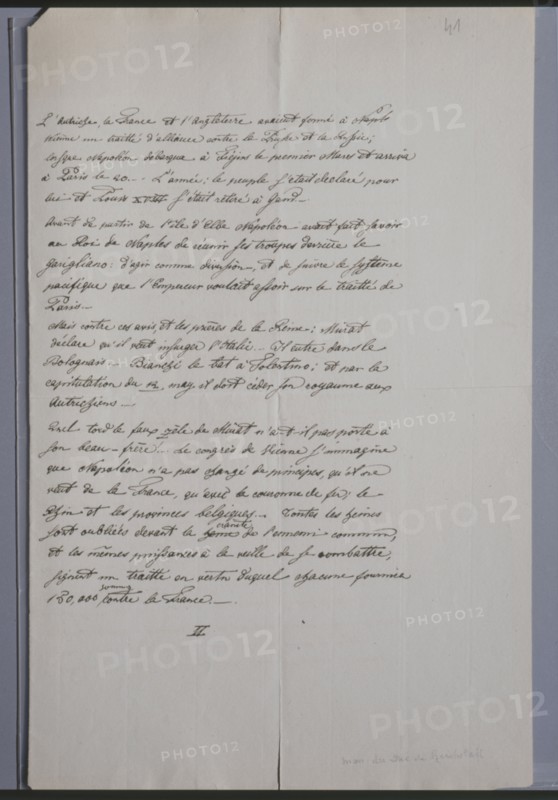 41
L'Autriche, la France et l'Angleterre avaient formé à
un traitté d'alliance contre le et la Russie;
lorsque Napoléon debarqua à le premier Mars et arriva
à Paris le 20.-- L'armée; le peuple s'était declaré pour
lui et Louis XVIII s'était retiré à Gand.--
Avant de partir de l'ile d'Elbe Napoléon avait fait savoir
au Roi de Naples de réunir ses troupes derrière le
Garigliano: d'agir comme division, et de suivre le système
pacifique que l'Empereur voulait assoir sur le traitté de
Paris.--
Mais contre ces avis, et les prières de la Reine; Murat
déclare qu'il veut l'Italie.-- Il entre dans le
Bolognais.-- Bianchi le bat à Tolentino; et par la
capitulation du may il doit céder son royaume aux
Autrichiens.--
Quel tord le faux zèle de Murat n'a-t-il pas porté à
son beau-frère!.. Le congrès de Vienne s'immagine
que Napoléon n'a pas changé de principes, qu'il ne
veut de la France, qu'avec la couronne de fer; le
Rhin et les provinces belgiques.-- Toutes les haines
sont oubliées devant la crainte de l'ennemi commun,
et les mêmes puissances à la veille de se combattre,
signent un traitté en vertu duquel chacune fournira
150,000 hommes contre la France.--
II
PHOTO12
PHOTO12
PHOTO12
PHOTO12
PHOTO12
PHOTO12
PHOTO12
PHOTO12
PHOTO12
PHOTO12